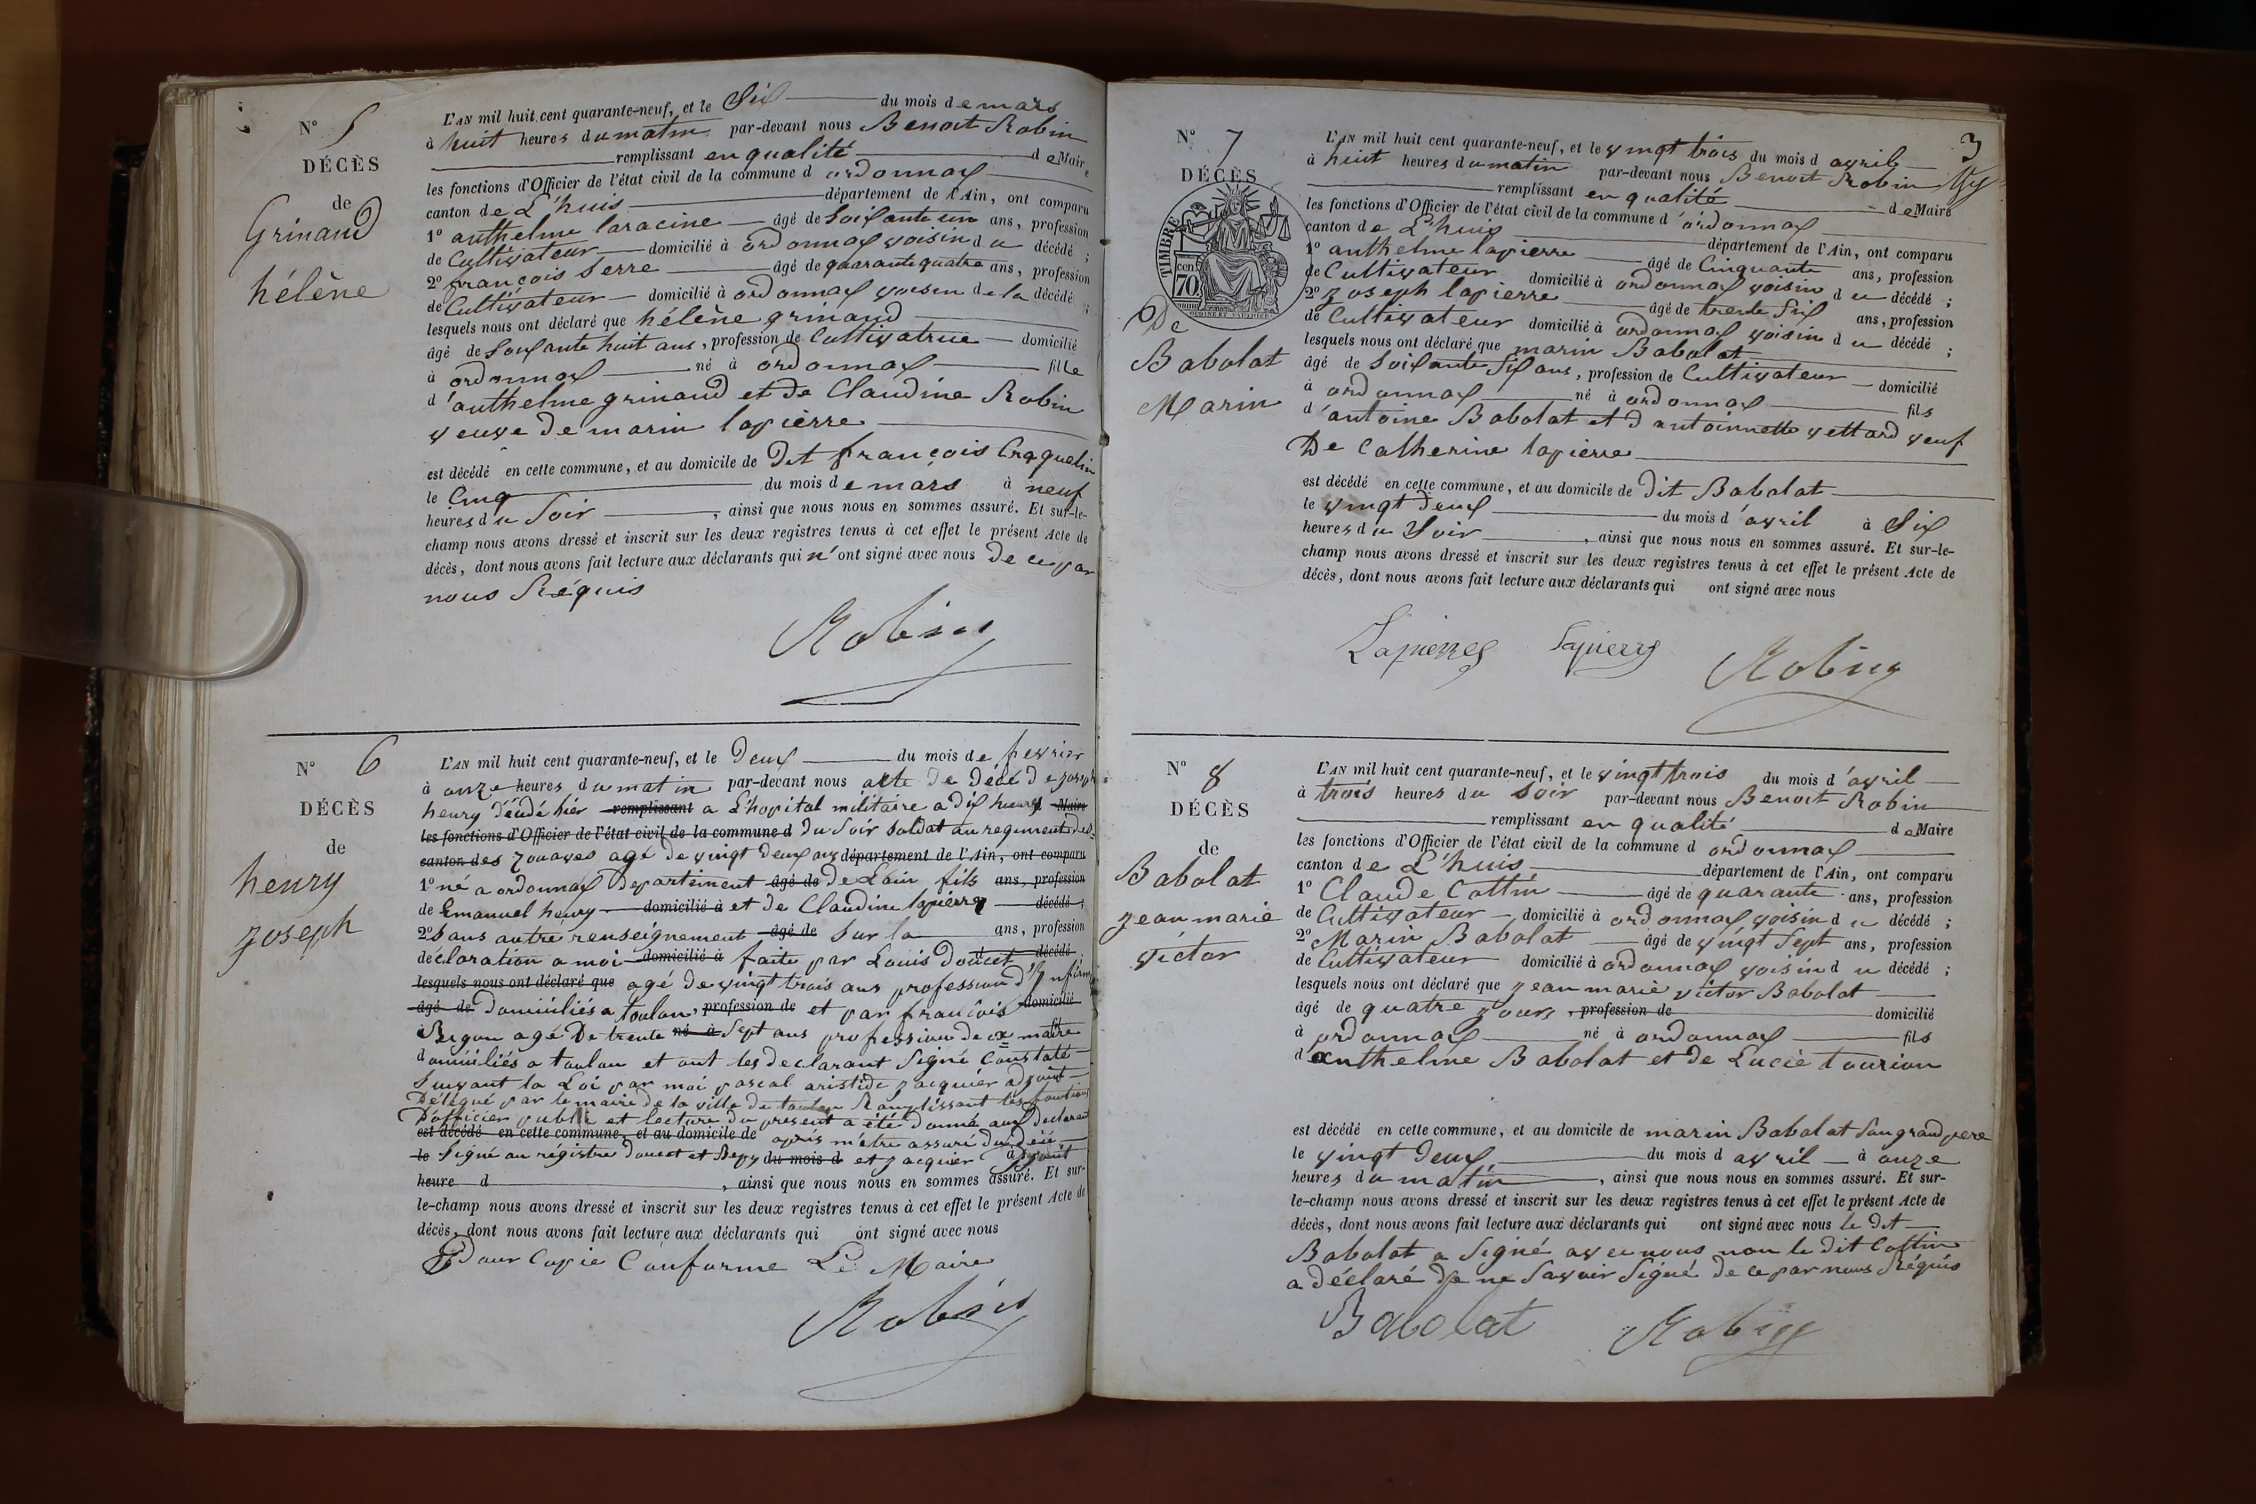 N° 5
DÉCÈS
de
Grinand
hélène
L'AN mil huit cent quarante-neuf, et le Six du mois de mars
à huit heures du matin par-devant nous Benoit Robin
remplissant en qualité de Maire
les fonctions d'Officier de l'état civil de la commune d ordonnax
canton de L'huis département de l'Ain, ont comparu
1° anthelme laracine âgé de Soixante un ans, profession
de Cultivateur domicilié à ordonnax voisin du décédé ;
2° françois Serre âgé de quarante quatre ans, profession
de Cultivateur domicilié à ordonnax voisin de la décédé ;
lesquels nous ont déclaré que hélène grinand
âgé de Soixante huit ans, profession de Cultivatrice domicilié
à ordonnax né à ordonnax fille
d'anthelme grinand et de Claudine Robin
veuve de marin lapierre
est décédé en cette commune, et au domicile de Dit françois Craquelin
le Cinq du mois de mars à neuf
heures du Soir, ainsi que nous nous en sommes assuré. Et sur-le-
champ nous avons dressé et inscrit sur les deux registres tenus à cet effet le présent Acte de
décès, dont nous avons fait lecture aux déclarants qui n'ont signé avec nous de ce par
nous Réquis
Robin
N° 6
DÉCÈS
de
henry
joseph
L'AN mil huit cent quarante-neuf, et le Deux du mois de fevrier
à onze heures du matin par-devant nous acte de décé de joseph
henry décédé hier remplissant a L'hopital militaire a dix heures Maire
les fonctions d'Officier de l'état civil de la commune d du soir soldat au regiment des
canton des zouaves agé de vingt deux ans département de l'Ain, ont comparu
1° né a ordonnax Departement âgé de de Lain fils ans, profession
de Emanuel henry domicilié à et de Claudine lapierre décédé ;
2° Sans autre renseignement âgé de Sur la ans, profession
de déclaration a moi domicilié à faite par Louis Doucet d décédé ;
lesquels nous ont déclaré que agé de vingt trois ans profession d'Infirmier
âgé de Domiciliés a toulon, profession de et par françois domicilié
à Begon agé De trente né à Sept ans profession de
domiciliés a toulon et ont les declarant Signé Constaté
Suivant la Loi par moi pascal aristide jacquier adjoint
Délégué par le maire de la ville de toulon Remplissant les fonctions
D'officier public et lecture du present a été donné aux Declarant
est décédé en cette commune, et au domicile de après m'etre assuré du décé
le Signé au régistre Doucet et du mois d et jacquier à adjoint
heure d , ainsi que nous nous en sommes assuré. Et sur-
le-champ nous avons dressé et inscrit sur les deux registres tenus à cet effet le présent Acte de
décès, dont nous avons fait lecture aux déclarants qui ont signé avec nous
Pour Copie Conforme Le Maire
Robin
3
N° 7
DÉCÈS
TIMBRE
70 cen
De
Babolat
Marin
L'AN mil huit cent quarante-neuf, et le vingt trois du mois d avril
à huit heures du matin par-devant nous Benoit Robin
remplissant en qualité de Maire
les fonctions d'Officier de l'état civil de la commune d'ordonnax
canton de L'huis département de l'Ain, ont comparu
1° anthelme lapierre âgé de Cinquante ans, profession
de Cultivateur domicilié à ordonnax voisin du décédé ;
2° joseph lapierre âgé de trente Six ans, profession
de Cultivateur domicilié à ordonnax voisin du décédé ;
lesquels nous ont déclaré que marin Babolat
âgé de Soixante Six ans, profession de Cultivateur domicilié
à ordonnax né à ordonnax fils
d'antoine Babolat et d antoinette vettard veuf
De Catherine lapierre
est décédé en cette commune, et au domicile de Dit Babolat
le vingt Deux du mois d'avril à Six
heures du Soir, ainsi que nous nous en sommes assuré. Et sur-le-
champ nous avons dressé et inscrit sur les deux registres tenus à cet effet le présent Acte de
décès, dont nous avons fait lecture aux déclarants qui ont signé avec nous
Lapierre Lapierre Robin
N° 8
DÉCÈS
de
Babolat
jean marie
victor
L'AN mil huit cent quarante-neuf, et le vingt trois du mois d'avril
à trois heures du soir par-devant nous Benoit Robin
remplissant en qualité de Maire
les fonctions d'Officier de l'état civil de la commune d ordonnax
canton de L'huis département de l'Ain, ont comparu
1° Claude Cottin âgé de quarante ans, profession
de Cultivateur domicilié à ordonnax voisin du décédé ;
2° Marin Babolat âgé de vingt Sept ans, profession
de Cultivateur domicilié à ordonnax voisin du décédé ;
lesquels nous ont déclaré que jean marie victor Babolat
âgé de quatre jours, profession de domicilié
à ordonnax né à ordonnax fils
d anthelme Babolat et de Lucie tourion
est décédé en cette commune, et au domicile de marin Babolat Son grand pere
le vingt Deux du mois d avril à onze
heures du matin, ainsi que nous nous en sommes assuré. Et sur-
le-champ nous avons dressé et inscrit sur les deux registres tenus à cet effet le présent Acte de
décès, dont nous avons fait lecture aux déclarants qui ont signé avec nous le Dit
Babolat a Signé avec nous non le dit Cottin
a déclaré de ne Savoir Signé de ce par nous Réquis
Babolat Robin